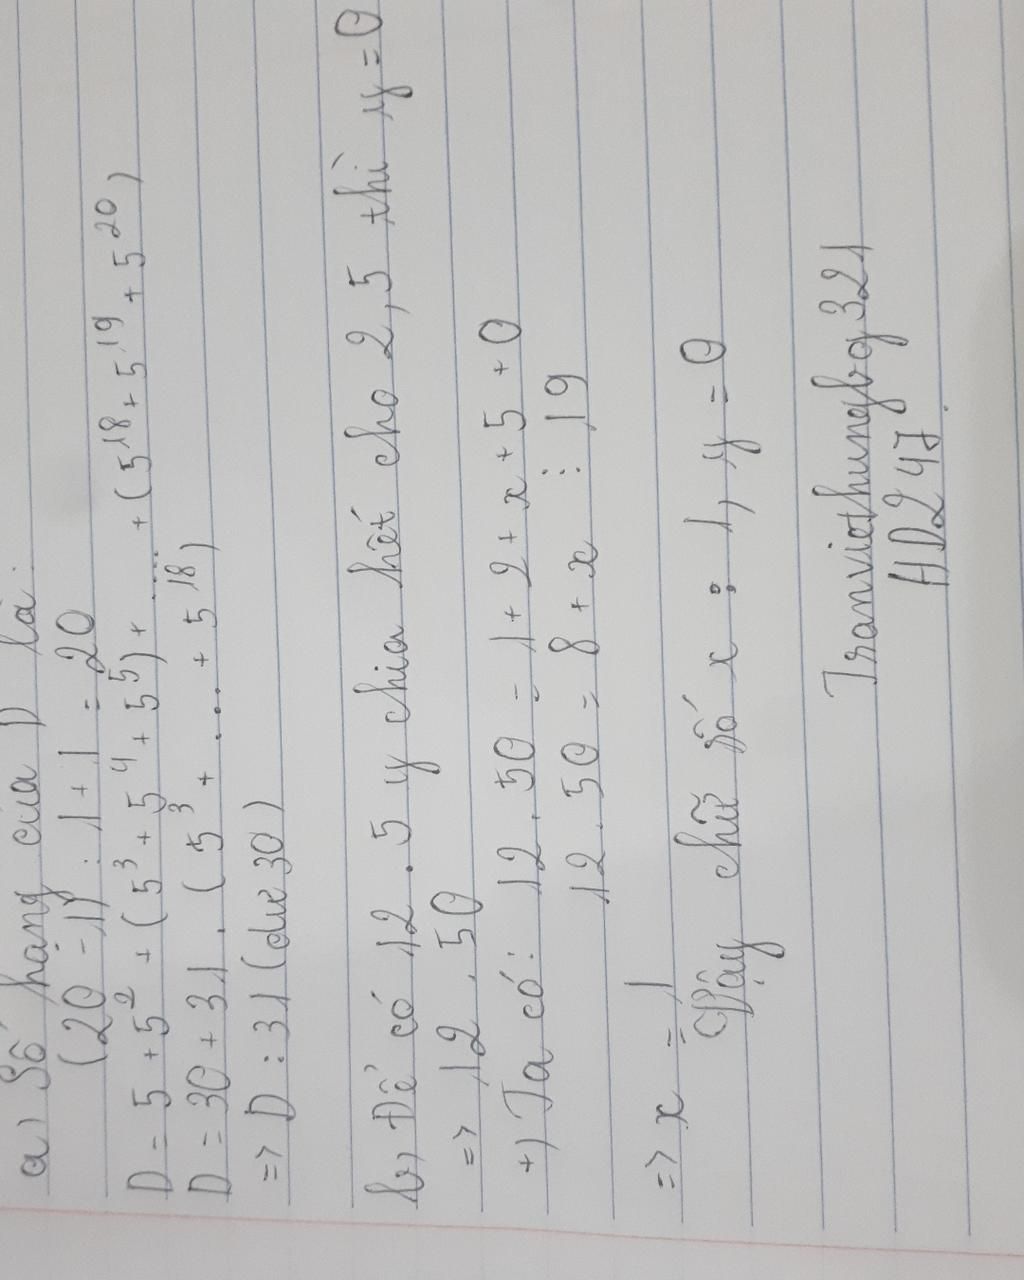 a) Số hạng của D là:
(20 - 1) : 1 + 1 = 20
D = 5 + 5² + (5³ + 5⁴ + 5⁵) + .... + (5¹⁸ + 5¹⁹ + 5²⁰)
D = 30 + 31 . (5³ + .... + 5¹⁸)
=> D : 31 (dư 30)
b) Để có 12 . 5 y chia hết cho 2, 5 thì y = 0
=> 12 . 50
+) Ta có: 12 . 50 = 1 + 2 + x + 5 + 0
12 . 50 = 8 + x ⋮ 19
=> x = 1
Vậy chữ số x : 1, y = 0
Tranviethungbg321
HD247